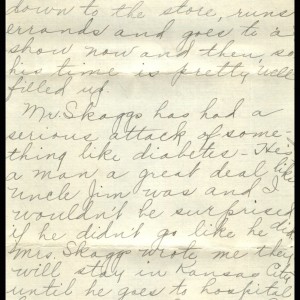 down to the store, runs
errands and goes to a
show now and then, so
his time is pretty well
filled up.
Mr. Skaggs has had a
serious attack of some-
thing like diabetes - He is
a man a great deal like
Uncle Jim was and I
wouldn't be surprised
if he didn't go like he did
Mrs. Skaggs wrote me they
will stay in Kansas City
until he goes to hospital